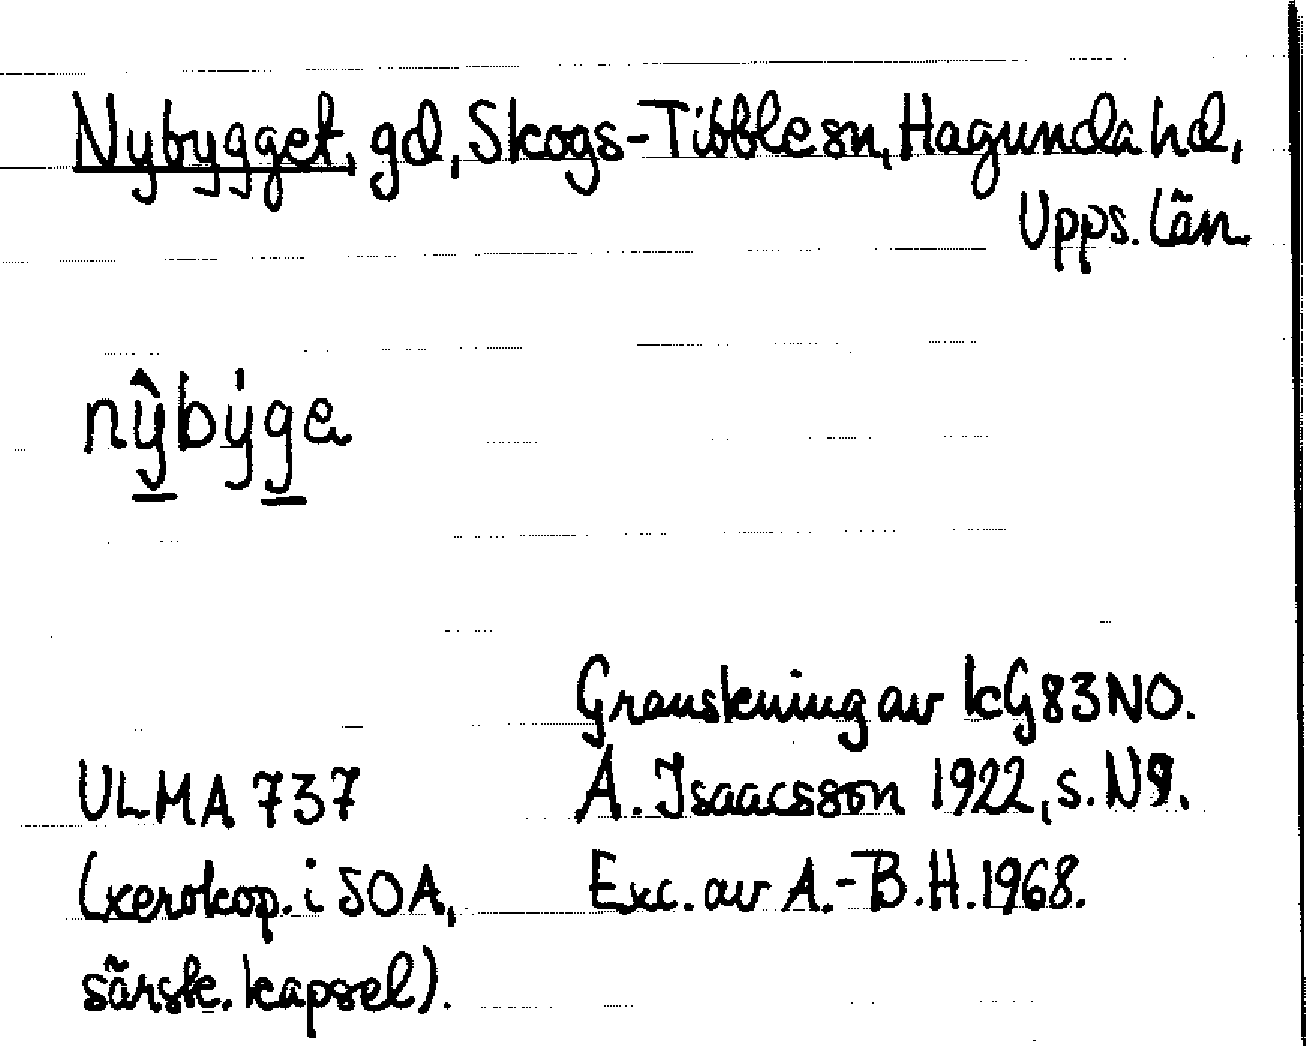 Nybygget, gd, Skogs-Tibble sn, Hagunda hd,
Upps. län
nŷbẏge
Granskning av kG83NO.
ULMA 737
A. Isaacsson 1922, s. N9.
(xerokop. i SOA,
Exc. av A.-B.H. 1968.
särsk. kapsel).